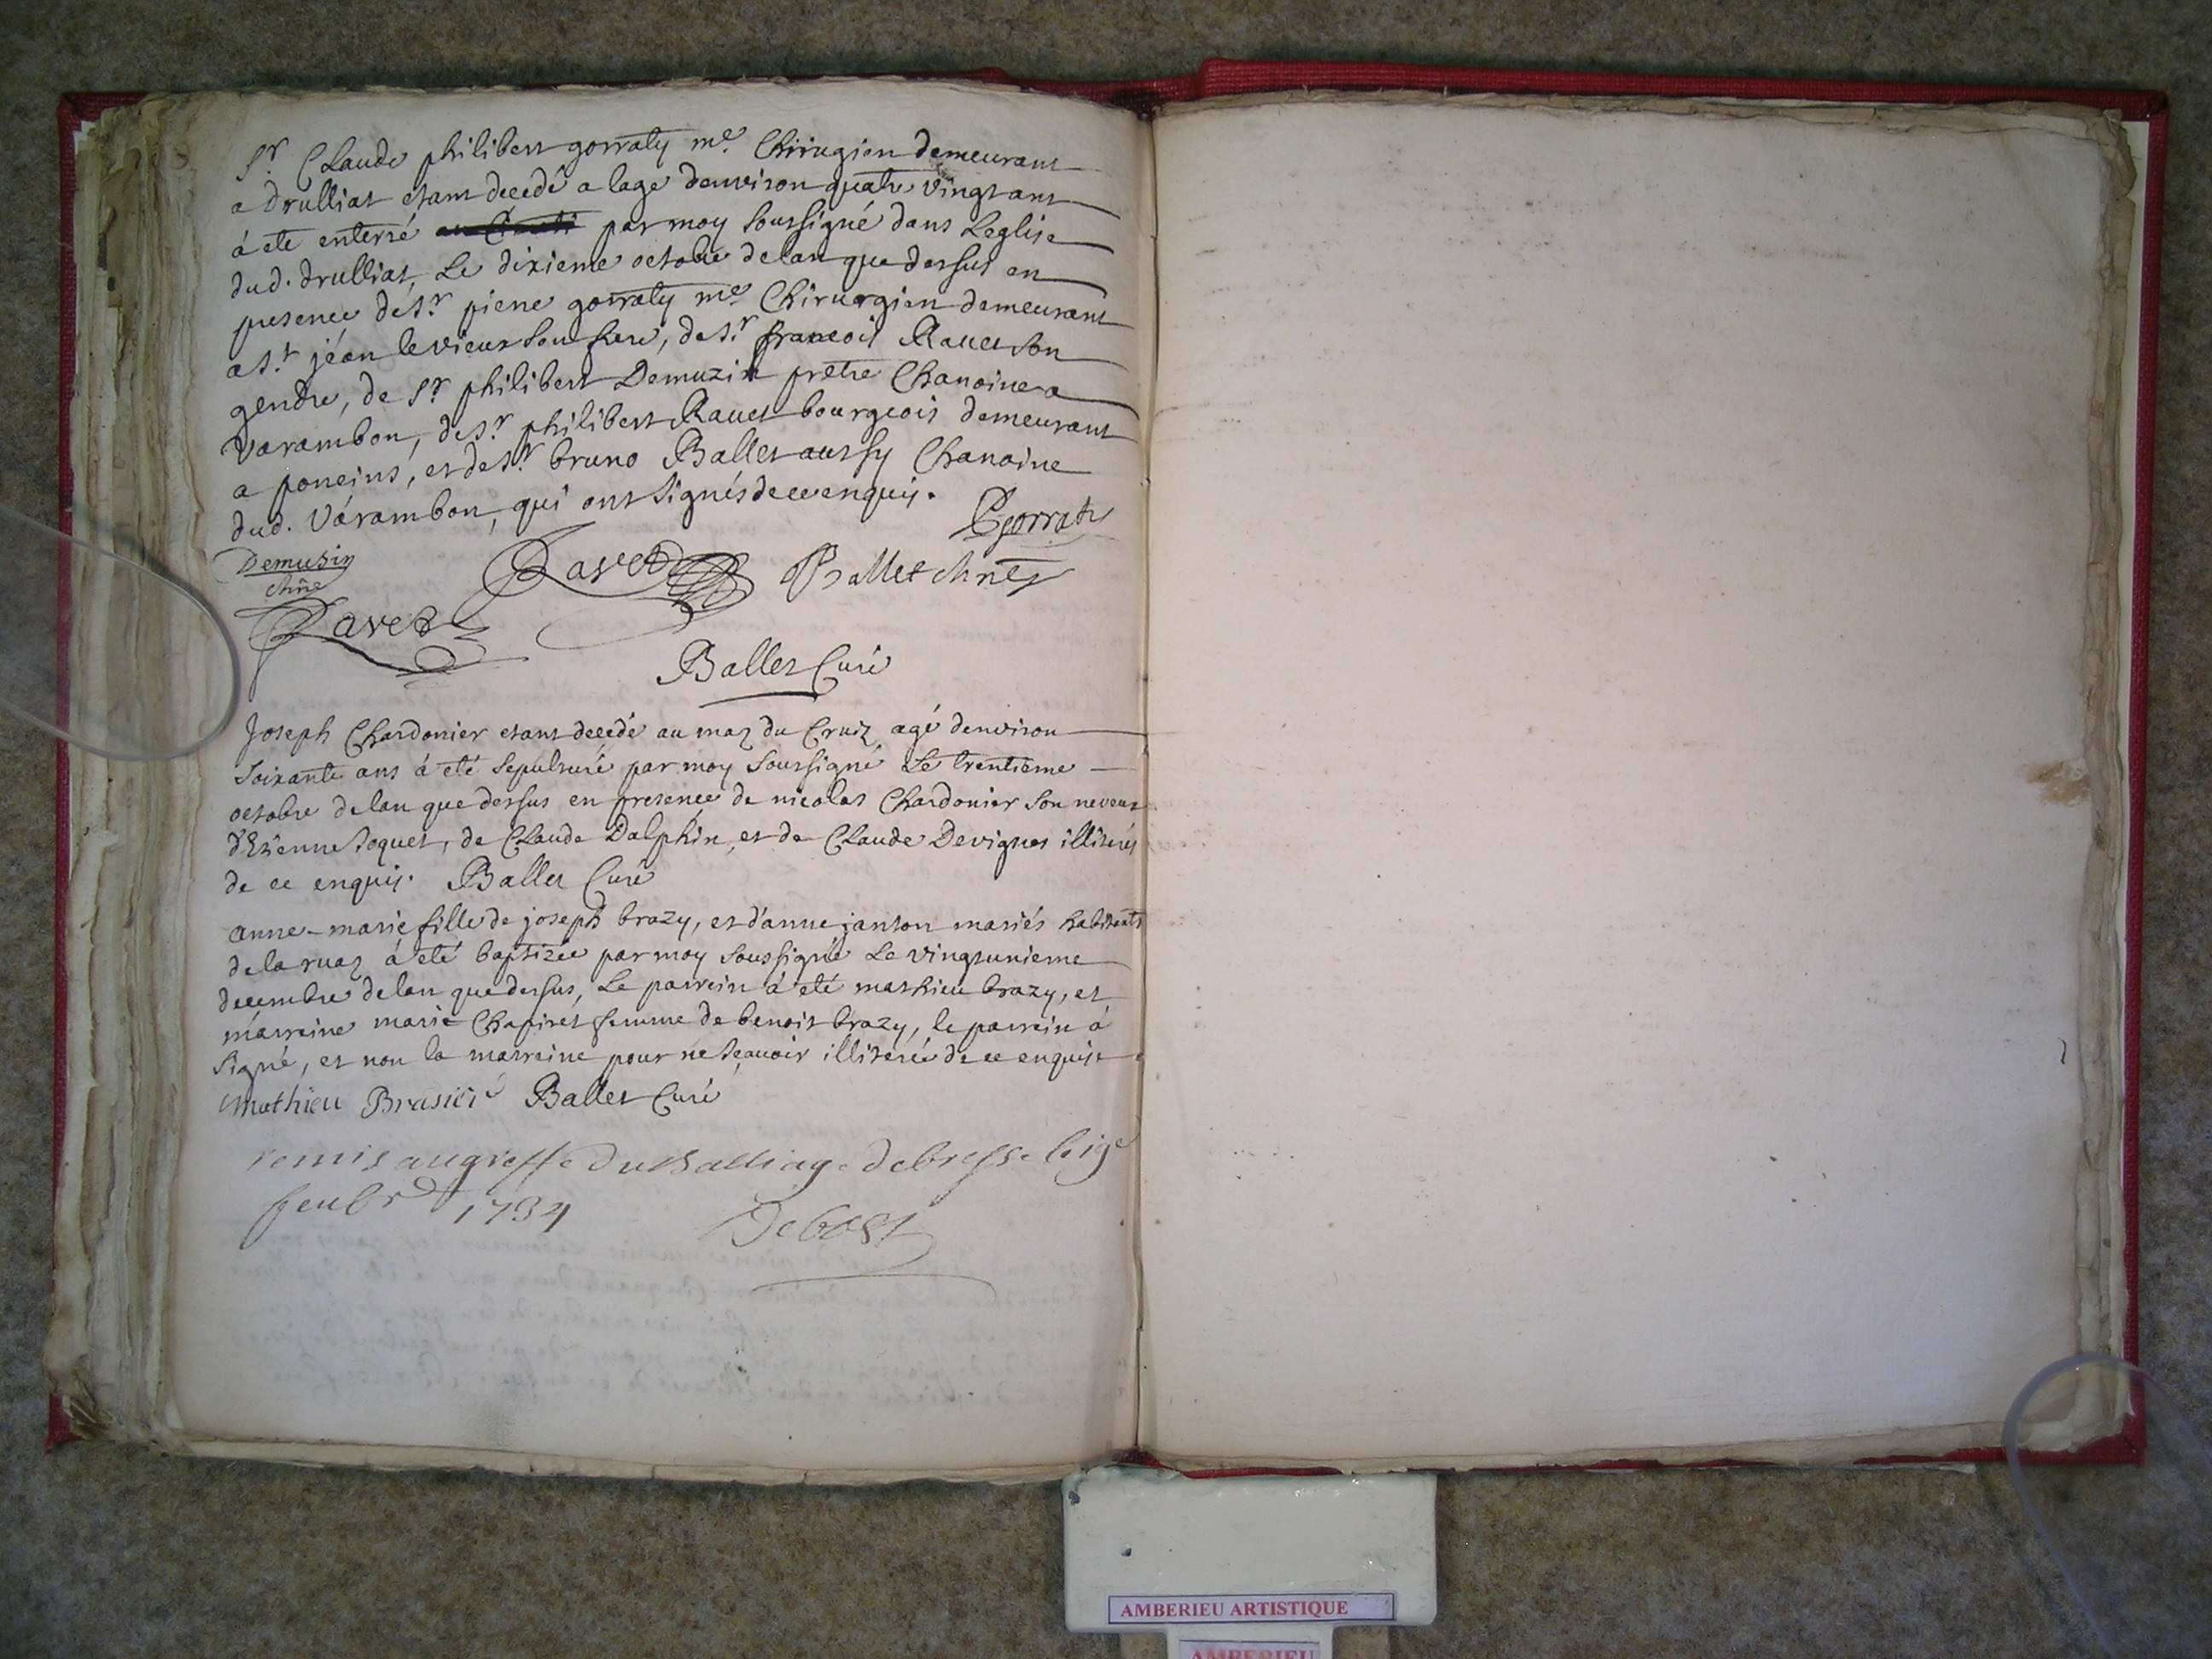 Sr. Claude philibert gorraty me. Chirugien demeurant
a Drulliat etant decedé a lage denviron quatre vingt ans
á eté enterré par moy soussigné dans Leglise
dud. drulliat, Le dixieme octobre delan que dessus en
presence de Sr. pierre gorraty me. Chirurgien demeurant
a St. jéan le vieux son frere, de Sr. francois Ravet son
gendre, de Sr. philibert Demuzin prêtre Chanoine a
Varambon, de Sr. philibert Ravet bourgeois demeurant
a poncins, et de Sr. bruno Ballet aussy Chanoine
dud. Várambon, qui ont signés de ce enquis.
Gorraty
Demusin
chne
Ravet
Ballet chne
Ravet
Ballet Curé
Joseph Chardonier etant decedé au maz du Cruiz agé denviron
soixante ans á eté sepulturé par moy soussigné Le trentieme
octobre delan que dessus en presence de nicolas Chardonier son neveux
d'Etienne Joquet, de Claude Dalphin, et de Claude Devignes illiterés
de ce enquis. Ballet Curé
anne-marie fille de joseph brazy, et d'anne janton mariés habitants
de la ruaz á eté baptizée par moy soussigné Le vingtunieme
decembre delan que dessus, Le parrein á eté mathieu brazy, et
márreine marie Chapiret femme de benoit brazy, le parrein á
signé, et non la marreine pour ne sçauoir illiterée de ce enquise
Mathieu Brasiér Ballet Curé
remis au greffe du Balliage de bresse le 19e
feubr 1734
Debost
AMBERIEU ARTISTIQUE
AMBERIEU